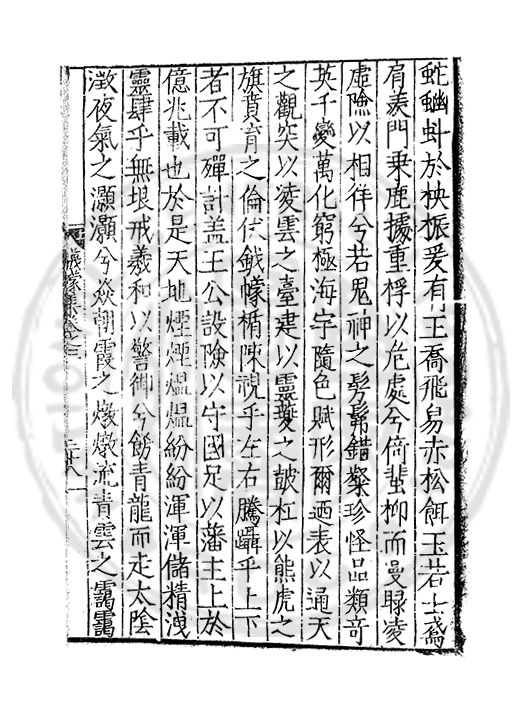 虵蚴蚪於柍桭爰有王喬飛舄赤松餌玉若士鳶
肩羨門乘鹿據重桴以危處兮倚蜚枊而曼睩凌
虛隒以相徉兮若鬼神之髣髴錯粲珍怪品類奇
英千變萬化窮極海宇隨色賦形爾迺表以通天
之觀突以凌雲之臺建以靈夔之皷杠以熊虎之
旗賁育之倫伏鉞幪楯陳視乎左右騰躡乎上下
者不可殫計盖王公設險以守國足以藩主上於
億兆載也於是天地煙煙熅熅紛紛渾渾儲精洩
靈肆乎無垠戒羲和以警衛兮餝青龍而走太陰
澂夜氣之灝灝兮焱朝霞之燉燉流青雲之靄靄
蠓集卷之三
二十八